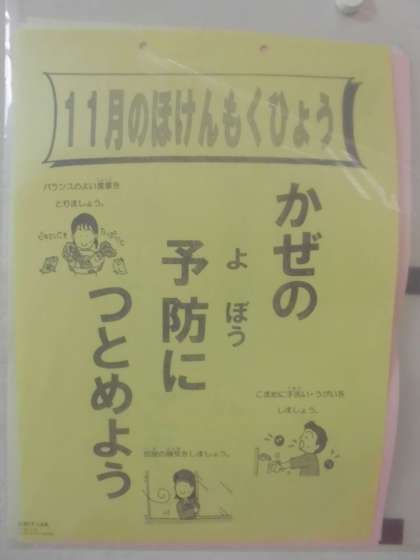 11月のほけんもくひょう
かぜの
予防に
よぼう
つとめよう
バランスのよい食事を
とりましょう。
こまめに手洗い・うがいを
しましょう。
部屋の換気をしましょう。